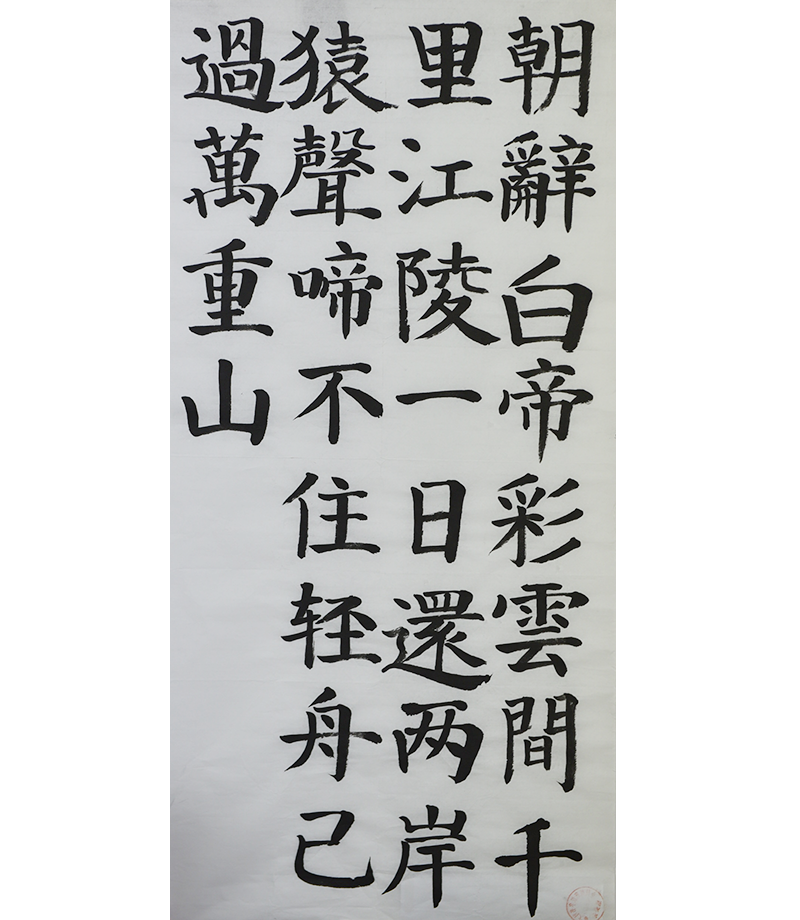 朝辭白帝彩雲間千
里江陵一日還两岸
猿聲啼不住轻舟已
過萬重山